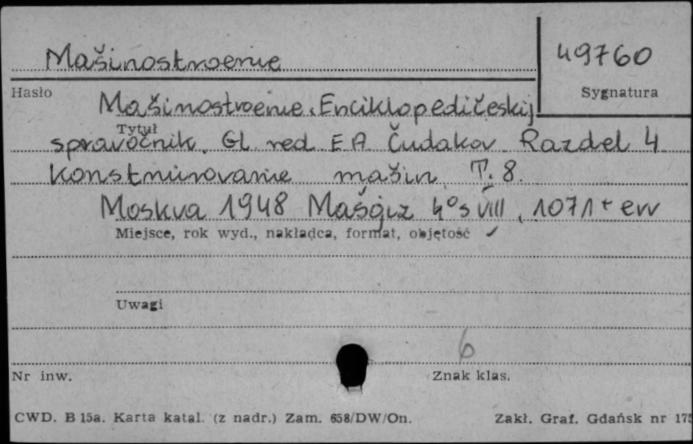 Mašinostroenie
49760
Hasło
Sygnatura
Mašinostroenie. Enciklopedičeskij
Tytuł
spravočnik. Gl. red. E A Čudakov. Razdel 4
Konstruirovanie mašin. T. 8.
Moskva 1948 Mašgiz 4° s VIII, 1071 + err
Miejsce, rok wyd., nakładca, format, objętość
Uwagi
6
Nr inw.
Znak klas.
CWD. B 15a. Karta katal. (z nadr.) Zam. 658/DW/On.
Zakł. Graf. Gdańsk nr 175